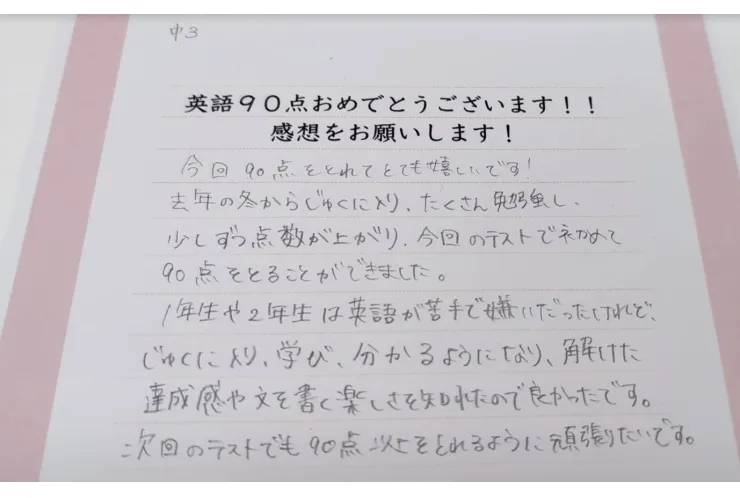 中3
英語90点おめでとうございます!!
感想をお願いします!
今回 90点をとれてとても嬉しいです!
去年の冬からじゅくに入り、たくさん勉強し、
少しずつ点数が上がり、今回のテストで初めて
90点をとることができました。
1年生や2年生は英語が苦手で嫌いだったけれど、
じゅくに入り、学び、分かるようになり、解けた
達成感や文を書く楽しさを知れたので良かったです。
次回のテストでも90点以上をとれるように頑張りたいです。